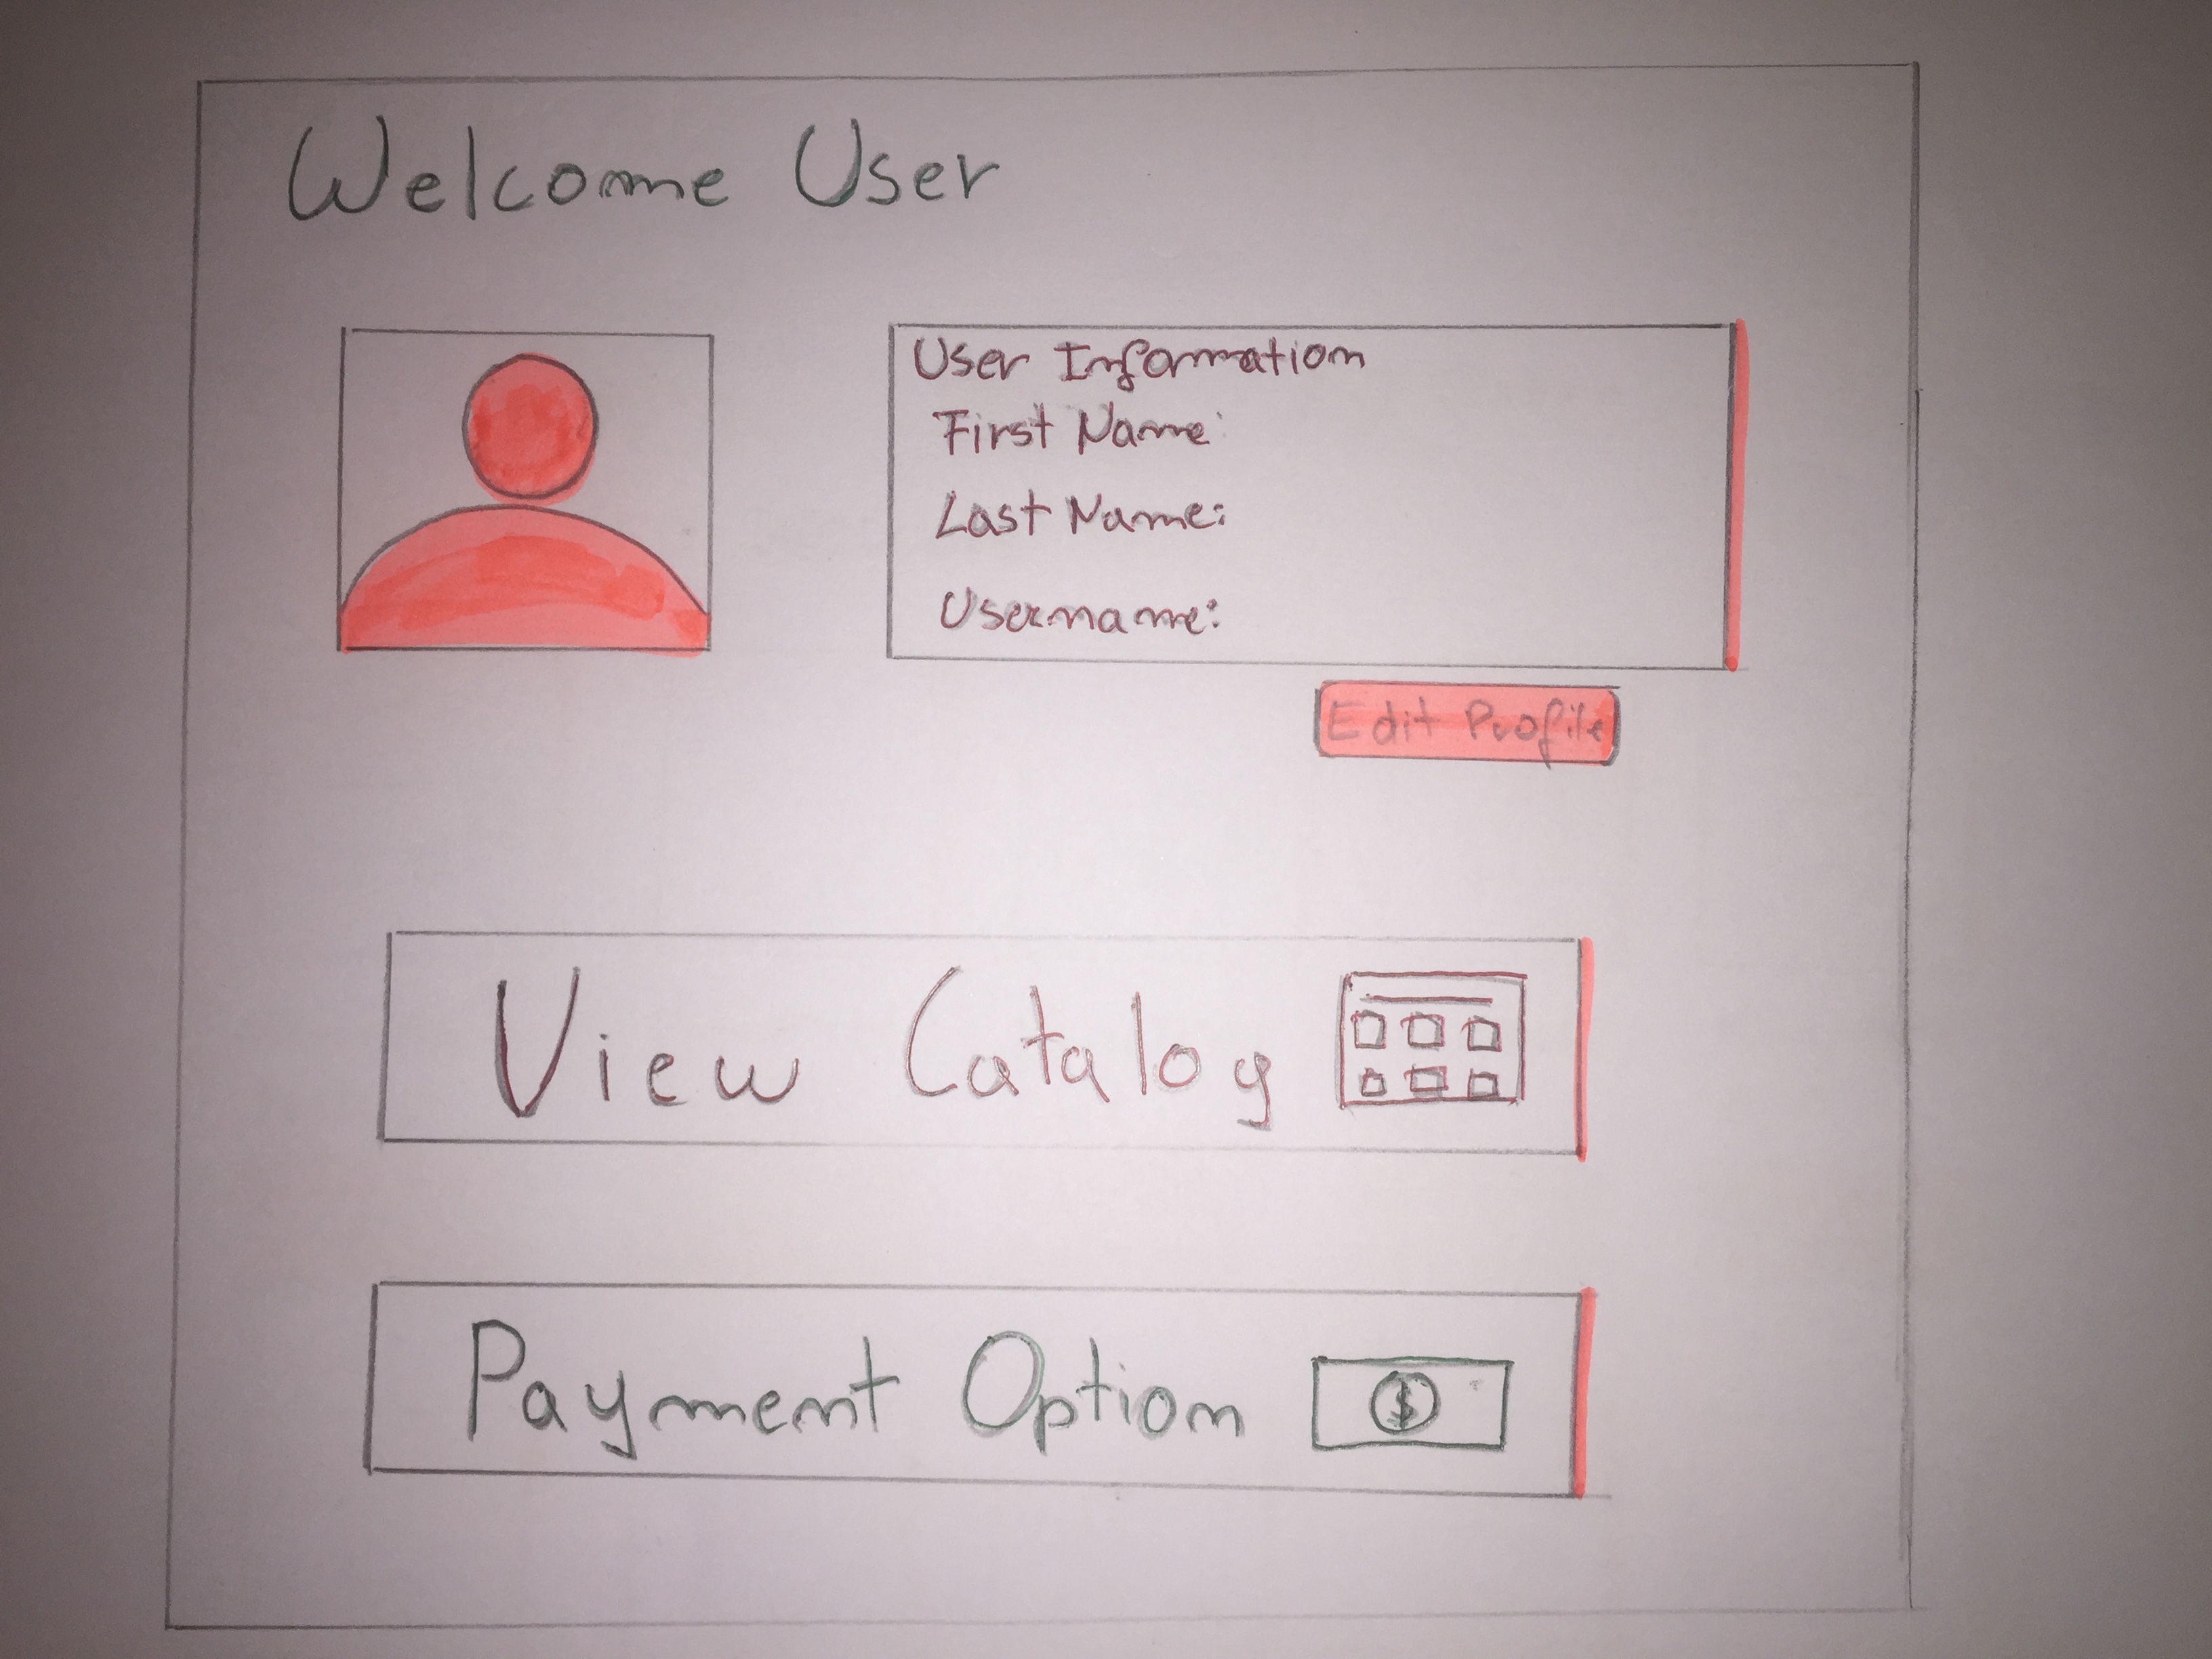 Welcome User
User Information
First Name:
Last Name:
Username:
Edit Profile
View Catalog
Payment Option
$